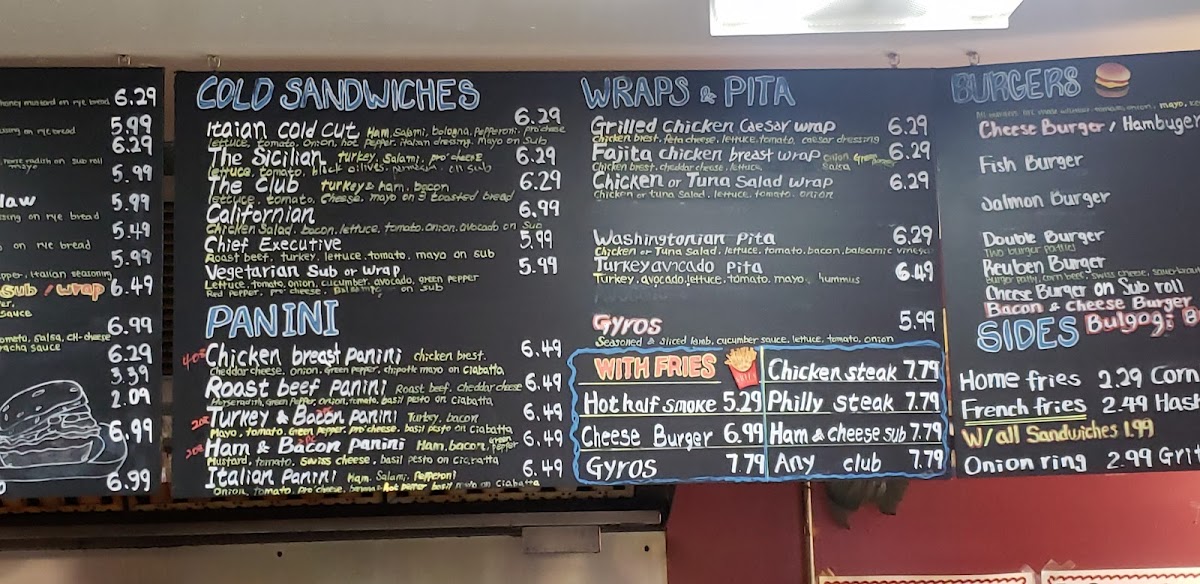 honey mustard on rye bread 6.29
5.99
on rye bread 6.29
on sub roll
mayo 5.99
law 5.99
on rye bread
5.49
on rye bread
5.99
Italian seasoning
sub / wrap 6.49
sauce
6.99
salsa, CH-cheese
sauce
6.29
3.39
2.09
6.99
6.99
COLD SANDWICHES
Itaian Cold Cut Ham, Salami, bologna, Pepperoni, pro cheese 6.29
lettuce, tomato, onion, hot pepper, italian dressing, mayo on sub
The Sicilian turkey, Salami, pro cheese 6.29
lettuce, tomato, black olives, on sub
The Club turkey & ham, bacon 6.29
lettuce, tomato, cheese, mayo on 3 toasted bread
Californian 6.99
Chicken Salad, bacon, lettuce, tomato, onion, avocado on Sub
Chief Executive 5.99
Roast beef, turkey, lettuce, tomato, mayo on sub
Vegetarian Sub or Wrap 5.99
Lettuce, tomato, onion, cucumber, avocado, green pepper
Red Pepper, pro cheese, on sub
PANINI
Chicken breast panini chicken brest. 6.49
cheddar cheese, onion, green pepper, chipotle mayo on ciabatta
Roast beef panini Roast beef, cheddar cheese 6.49
Horseradish, Green Pepper, onion, tomato, basil pesto on Ciabatta
Turkey & Bacon panini Turkey, bacon 6.49
Mayo, tomato, Green pepper, pro cheese, basil pesto on Ciabatta
Ham & Bacon panini Ham, bacon, green pepper 6.49
Mustard, tomato, Swiss cheese, basil pesto on Ciabatta
Italian panini Ham, Salami, Pepperoni 6.49
Onion, Tomato, Pro cheese, hot pepper on Ciabatta
WRAPS & PITA
Grilled chicken Caesar wrap 6.29
chicken brest, feta cheese, lettuce, tomato, caesar dressing
Fajita chicken breast wrap onion, Green Pepper 6.29
Chicken brest, cheddar cheese, lettuce, Salsa
Chicken or Tuna Salad wrap 6.29
Chicken or tuna Salad, lettuce, tomato, onion
Washingtonian Pita 6.29
Chicken or Tuna Salad, lettuce, tomato, bacon, balsamic vinegar
Turkey avncado Pita 6.49
Turkey, avocado, lettuce, tomato, mayo, hummus
Gyros 5.99
Seasoned & sliced lamb, cucumber sauce, lettuce, tomato, onion
WITH FRIES
Hot half smoke 5.29
Cheese Burger 6.99
Gyros 7.79
Chicken steak 7.79
Philly steak 7.79
Ham & cheese sub 7.79
Any club 7.79
BURGERS
mayo
Cheese Burger / Hambuger
Fish Burger
Salmon Burger
Double Burger
Two burger patties
Reuben Burger
Burger patty, corn beef, swiss cheese,
Cheese Burger on Sub roll
Bacon & Cheese Burger
Bulgogi B
SIDES
Home fries 2.29 Corn
French fries 2.49 Hash
W/ all Sandwiches 1.99
Onion ring 2.99 Grit